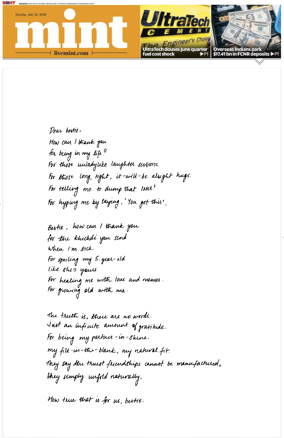 mint
livemint.com
UltraTech
CEMENT
UltraTech douses June quarter
fuel cost shock ▶P1
Overseas Indians park
$17.41 bn in FCNR deposits ▶P1
Dear bestie,
How can I thank you
for being in my life?
For those unladylike laughter sessions
For those long, tight, it-will-be alright hugs.
For telling me to dump that loser!
For hyping me by saying, 'You got this'.
Bestie, how can I thank you
for the khichdi you send
when I'm sick.
For spoiling my 5-year-old
like she's yours
For healing me with love and memes.
For growing old with me.
The truth is, there are no words.
Just an infinite amount of gratitude.
For being my partner-in-shine.
my fill-in-the-blank, my natural fit.
They say the truest friendships cannot be manufactured,
they simply unfold naturally.
How true that is for us, bestie.